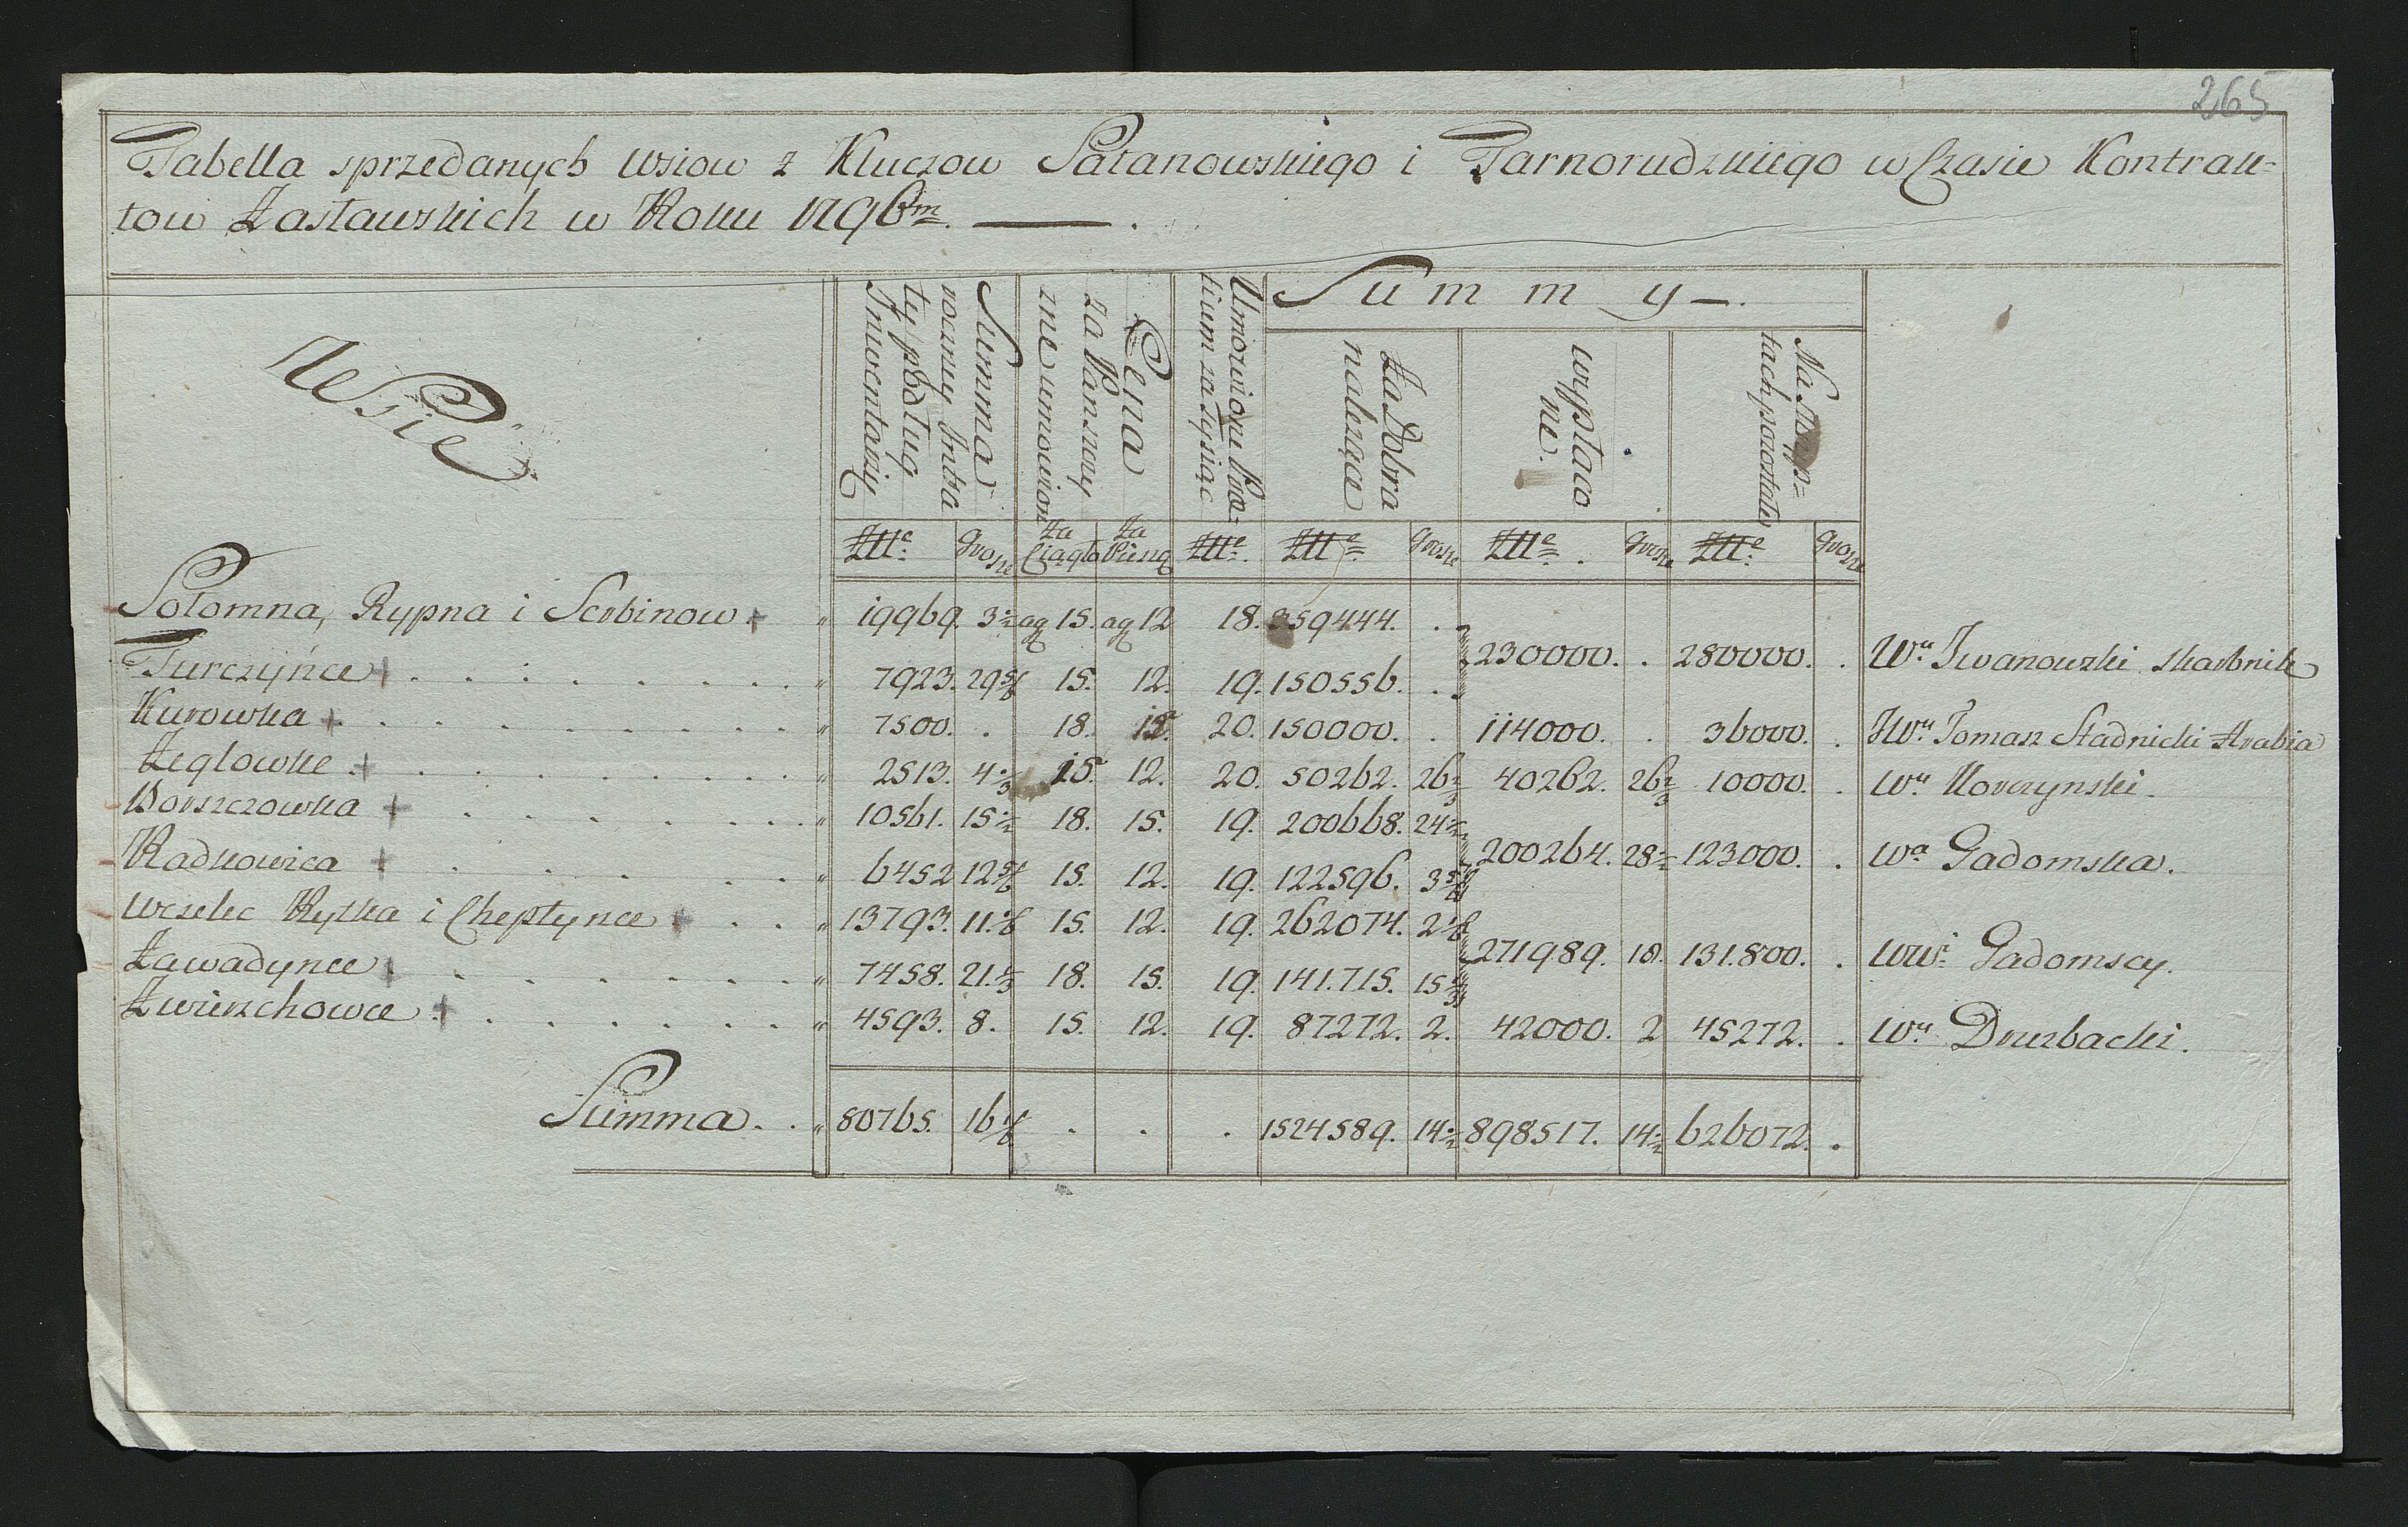 265
Tabella sprzedanych wsiow z Kluczow Satanowskiego i Tarnorudzkiego w Czasie Kontrak=
tow Zasławskich w Roku 1796m. —.
Wsie
Summa roczney Intra ty podług Inwentarzy
Cena za Panszczy zne umowion
Umowione Præ= tium za Tysiąc
Summy —.
Za Dobra należąca
wypłaco ne.
Na tach pozostałe
Złłe. grosze Za Ciągłą Za Pieszą Złłe. Złłe. grosze Złłe. grosze Złłe. grosze
Sołomna, Rypna i Serbinow + " 19969. 3 1/2 ag 15. ag 12 18. 359444. .
230000. . 280000. . Wu Iwanowski Skarbnik
Turczyńce + . . . . . . . . " 7923. 29 5/6 15. 12. 19. 150556. .
Kurowka + . . . . . . . . " 7500. . 18. 15. 20. 150000. . 114000. . 36000. . JWu Tomasz Stadnicki Hrabia
Zeglowke + . . . . . . . . " 2513. 4 1/3 15. 12. 20. 50262. 26 2/3 40262. 26 2/3 10000. . Wu Korczynski.
Borszczowka + . . . . . . . " 10561. 15 1/2 18. 15. 19. 200668. 24 1/2
200264. 28 1/2 123000. . Wa Gadomska.
Radkowica + . . . . . . " 6452 12 5/6 15. 12. 19. 122596. 3 5/6
Weselec Rytka i Cheptynce + . . " 13793. 11. 1/6 15. 12. 19. 262074. 2 1/6
271989. 18. 131.800. . WWi Gadomscy.
Zawadynce + . . . . . . . " 7458. 21. 1/3 18. 15. 19. 141.715. 15 1/3
Zwierzchowce + . . . . . . . " 4593. 8. 15. 12. 19. 87272. 2. 42000. 2 45272. . Wu Drurbacki.
Summa . . " 80765. 16 1/6 . . . 1524589. 14 1/2 898517. 14 1/2 626072. .